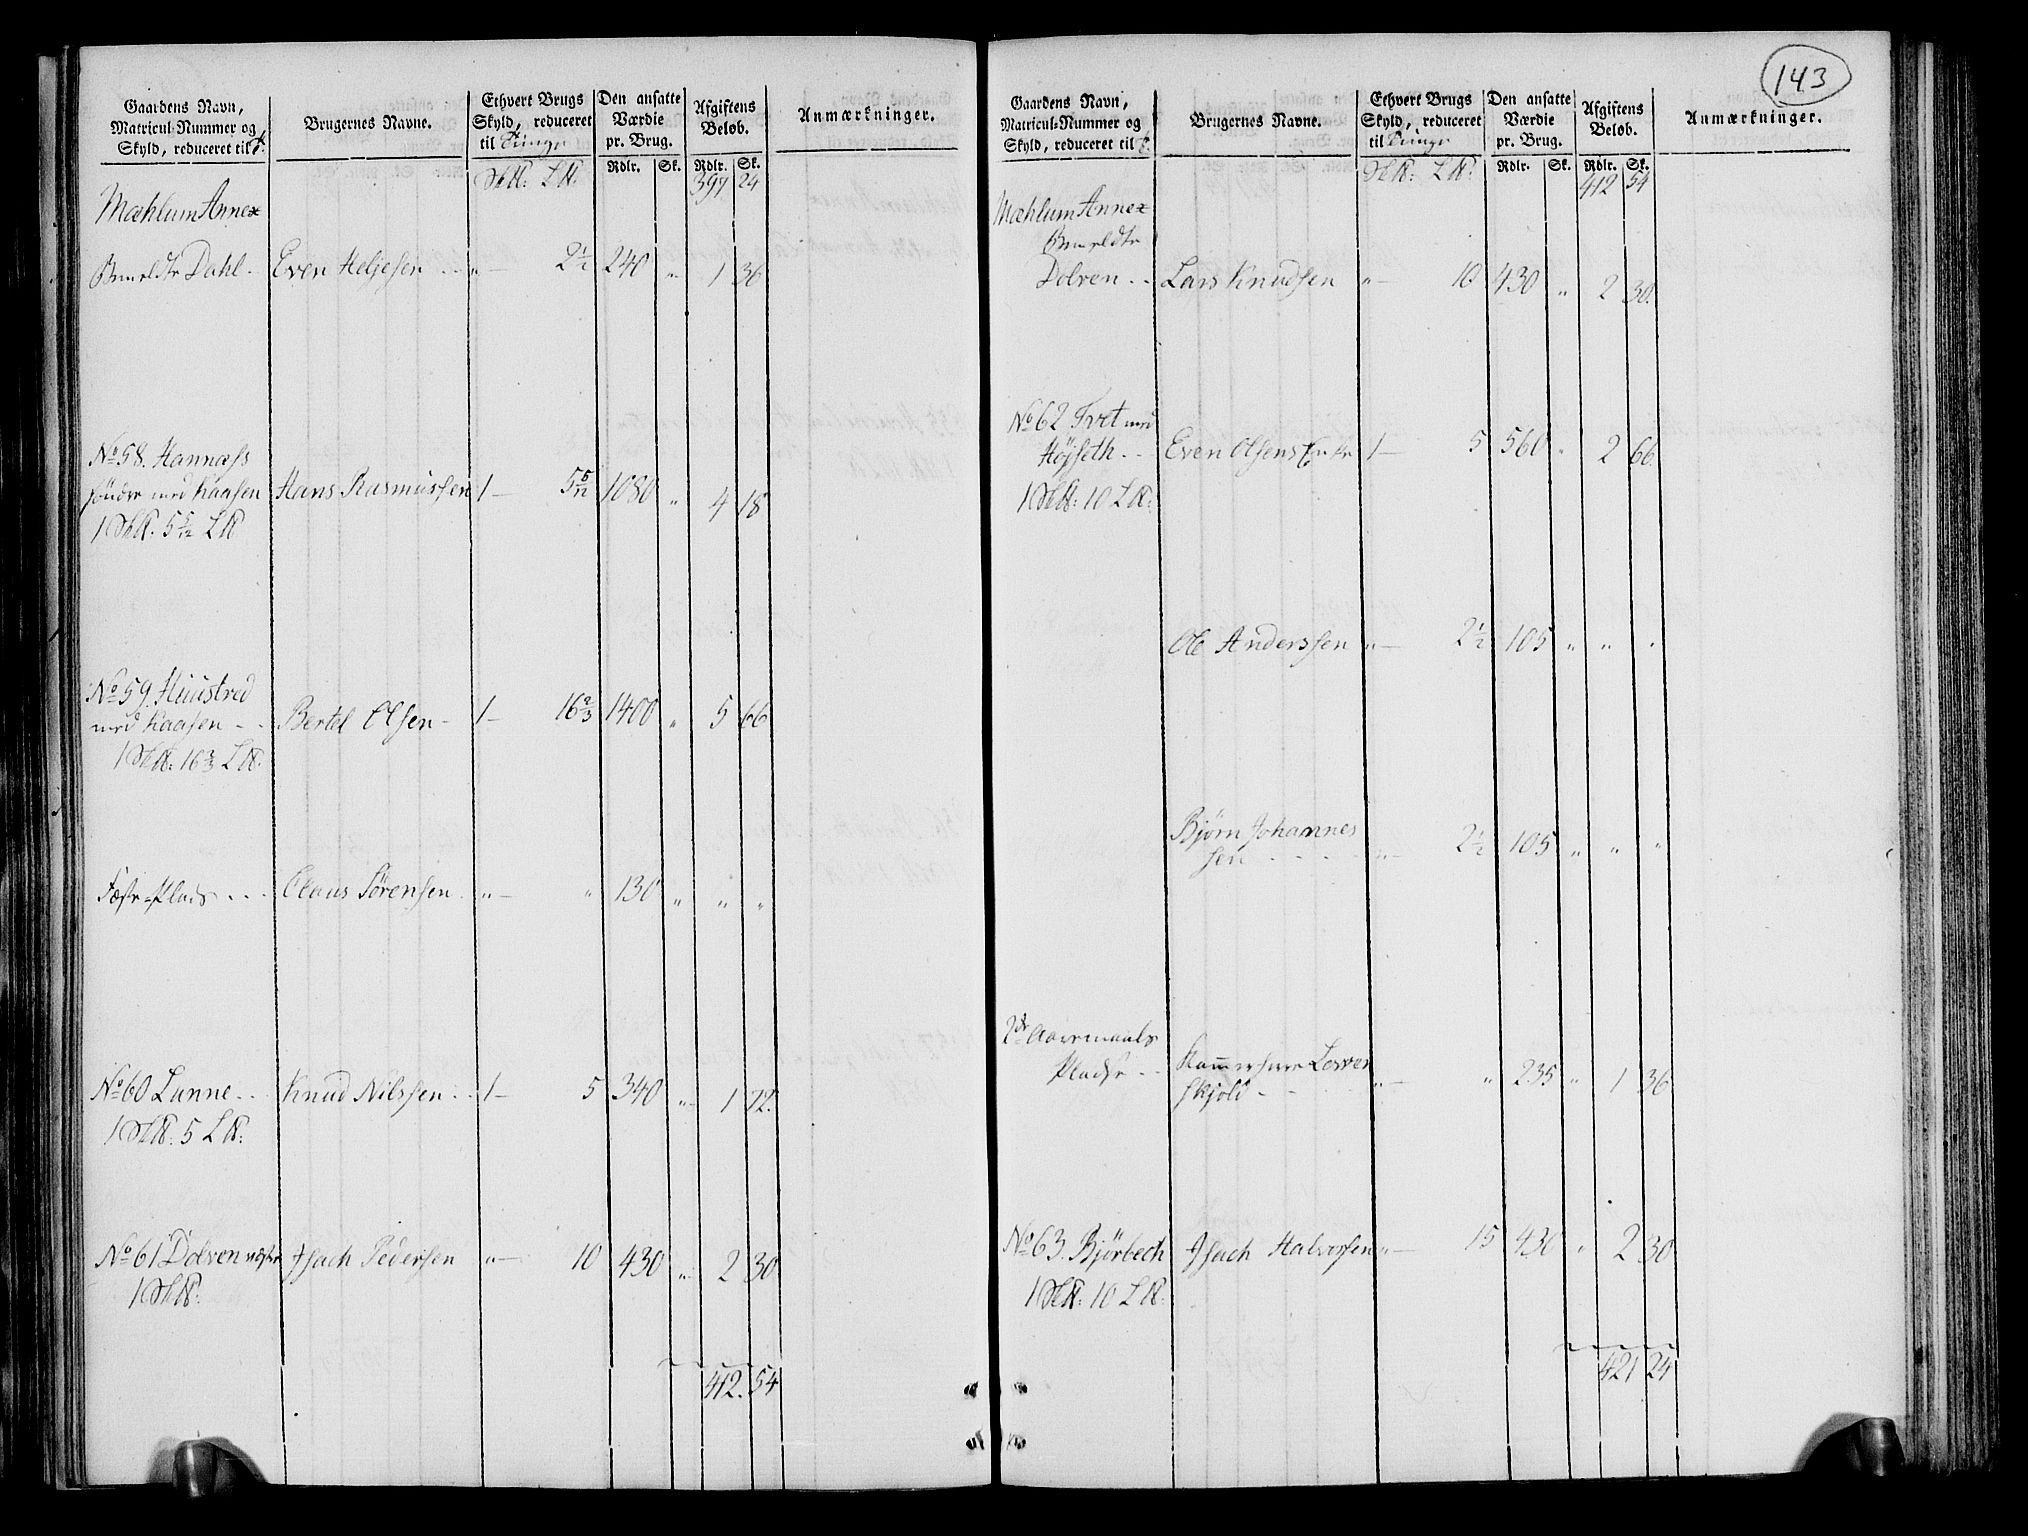 143
Gaardens Navn,
Matricul-Nummer og
Skyld, reduceret til
Brugernes Navne.
Ethvert Brugs
Skyld, reduceret
til Tunge
Den ansatte
Værdie
pr. Brug.
Afgiftens
Beløb.
Anmærkninger.
Rdlr. Sk. Rdlr. Sk.
397 24
Mæhlum Annex
Dahl Even Heljesen „ 2 1/2 240 „ 1 30
No 58. Hannæss
söndre med Kaasen Hans Rasmussen 1 5 5/12 1080 „ 4 18
1 5 5/12
No 59. Huustred
med Kaasen Bertel Olsen 1 16 2/3 1400 „ 5 66
1 16 2/3
Fæste-Plads Claus Sörensen „ „ 130 „ „ „
No 60 Lunne Knud Nilssen 1 5 340 „ 1 72.
1 5
No 61 Dolven Isach Pedersen „ 10 430 „ 2 30
1
412. 54
Gaardens Navn,
Matricul-Nummer og
Skyld, reduceret til
Brugernes Navne.
Ethvert Brugs
Skyld, reduceret
til Tunge
Den ansatte
Værdie
pr. Brug.
Afgiftens
Beløb.
Anmærkninger.
Rdlr. Sk. Rdlr. Sk.
412 54
Mæhlum Annex
Dolven Lars Knudsen „ 10 430 „ 2 30.
No 62 Tvet med
Höjseth Even Olsens Enke 1 5 560 „ 2 66.
1 10
Ole Anderssen „ 2 1/2 105 „ „ „
Bjørn Johannes
sen „ 2 1/2 105 „ „ „
Pladse Kammerherre Løven
skjold „ „ 235 „ 1 36
No 63. Bjørbech Isach Halvorssen „ 15 430 „ 2 30
1 10
421 24